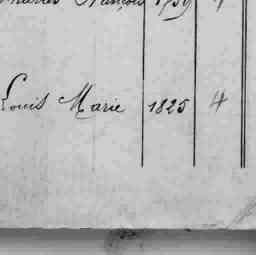 François 1759
Louis Marie 1825 4